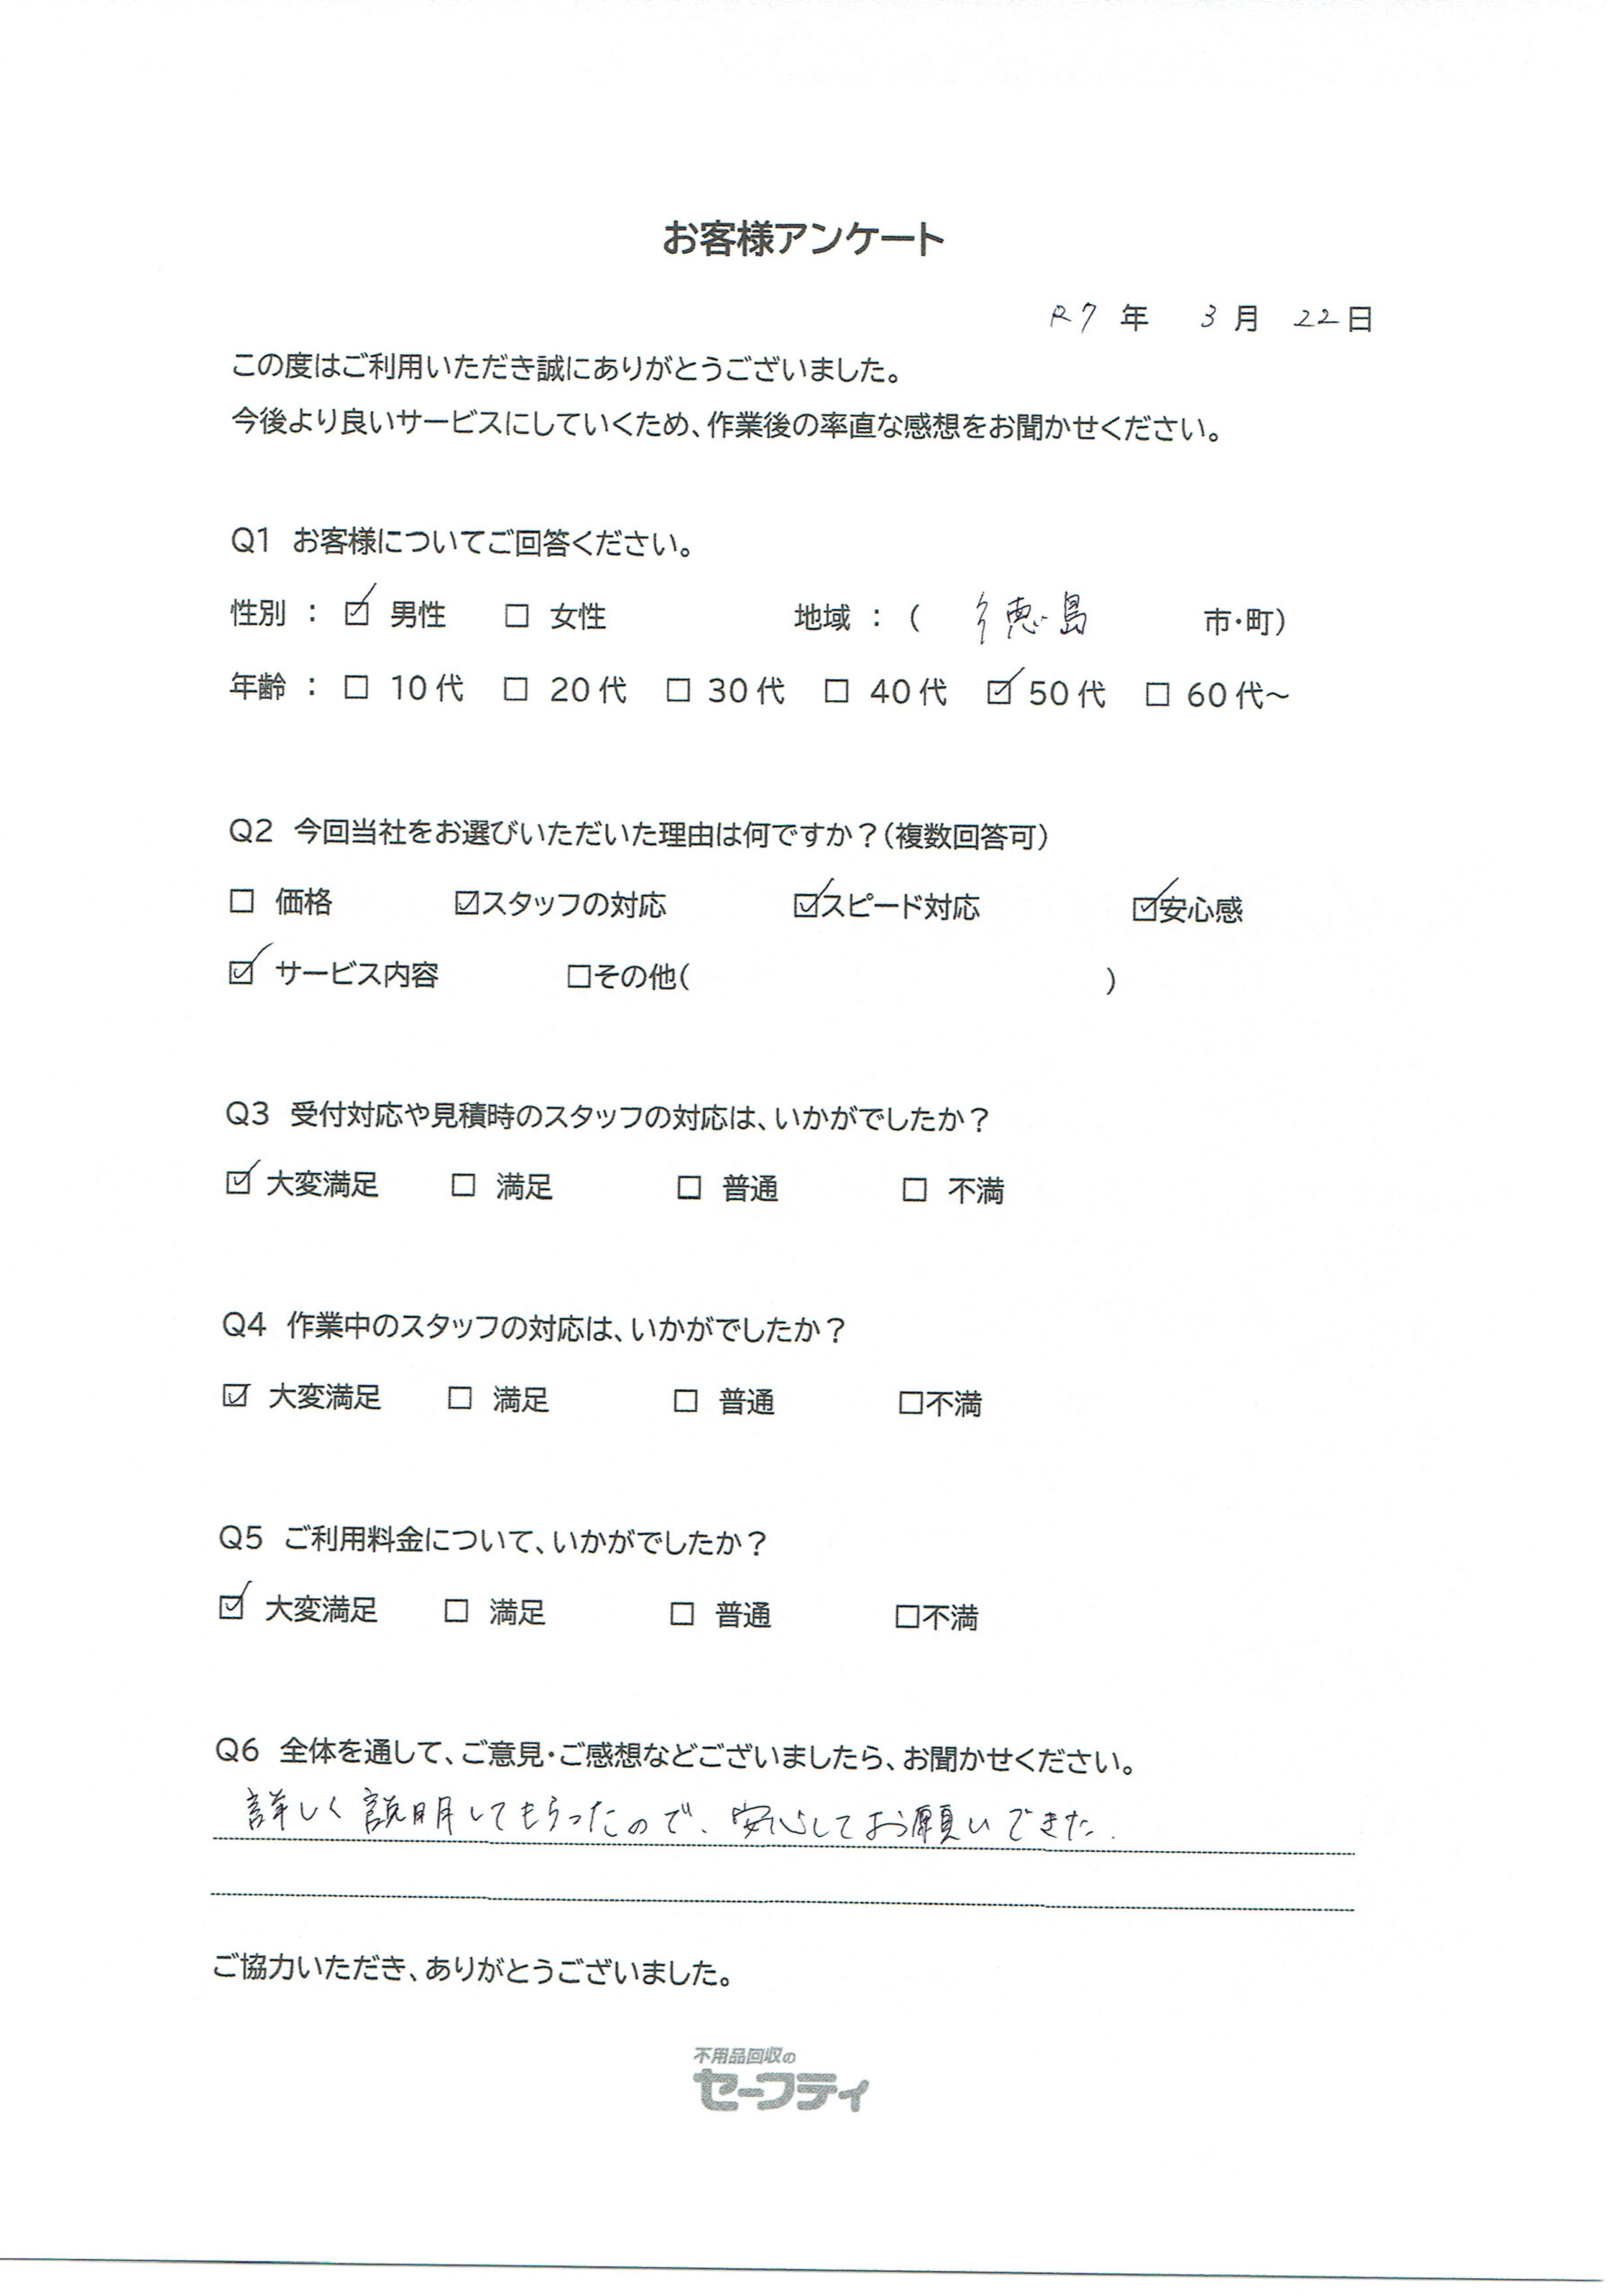 お客様アンケート
R7 年 3 月 22 日
この度はご利用いただき誠にありがとうございました。
今後より良いサービスにしていくため、作業後の率直な感想をお聞かせください。
Q1 お客様についてご回答ください。
性別 : ☑ 男性 □ 女性 地域 : ( 徳島 市・町)
年齢 : □ 10代 □ 20代 □ 30代 □ 40代 ☑ 50代 □ 60代～
Q2 今回当社をお選びいただいた理由は何ですか?(複数回答可)
□ 価格 ☑スタッフの対応 ☑スピード対応 ☑安心感
☑ サービス内容 □その他( )
Q3 受付対応や見積時のスタッフの対応は、いかがでしたか?
☑ 大変満足 □ 満足 □ 普通 □ 不満
Q4 作業中のスタッフの対応は、いかがでしたか?
☑ 大変満足 □ 満足 □ 普通 □不満
Q5 ご利用料金について、いかがでしたか?
☑ 大変満足 □ 満足 □ 普通 □不満
Q6 全体を通して、ご意見・ご感想などございましたら、お聞かせください。
詳しく説明してもらったので、安心してお願いできた.
ご協力いただき、ありがとうございました。
不用品回収の
セーフティ